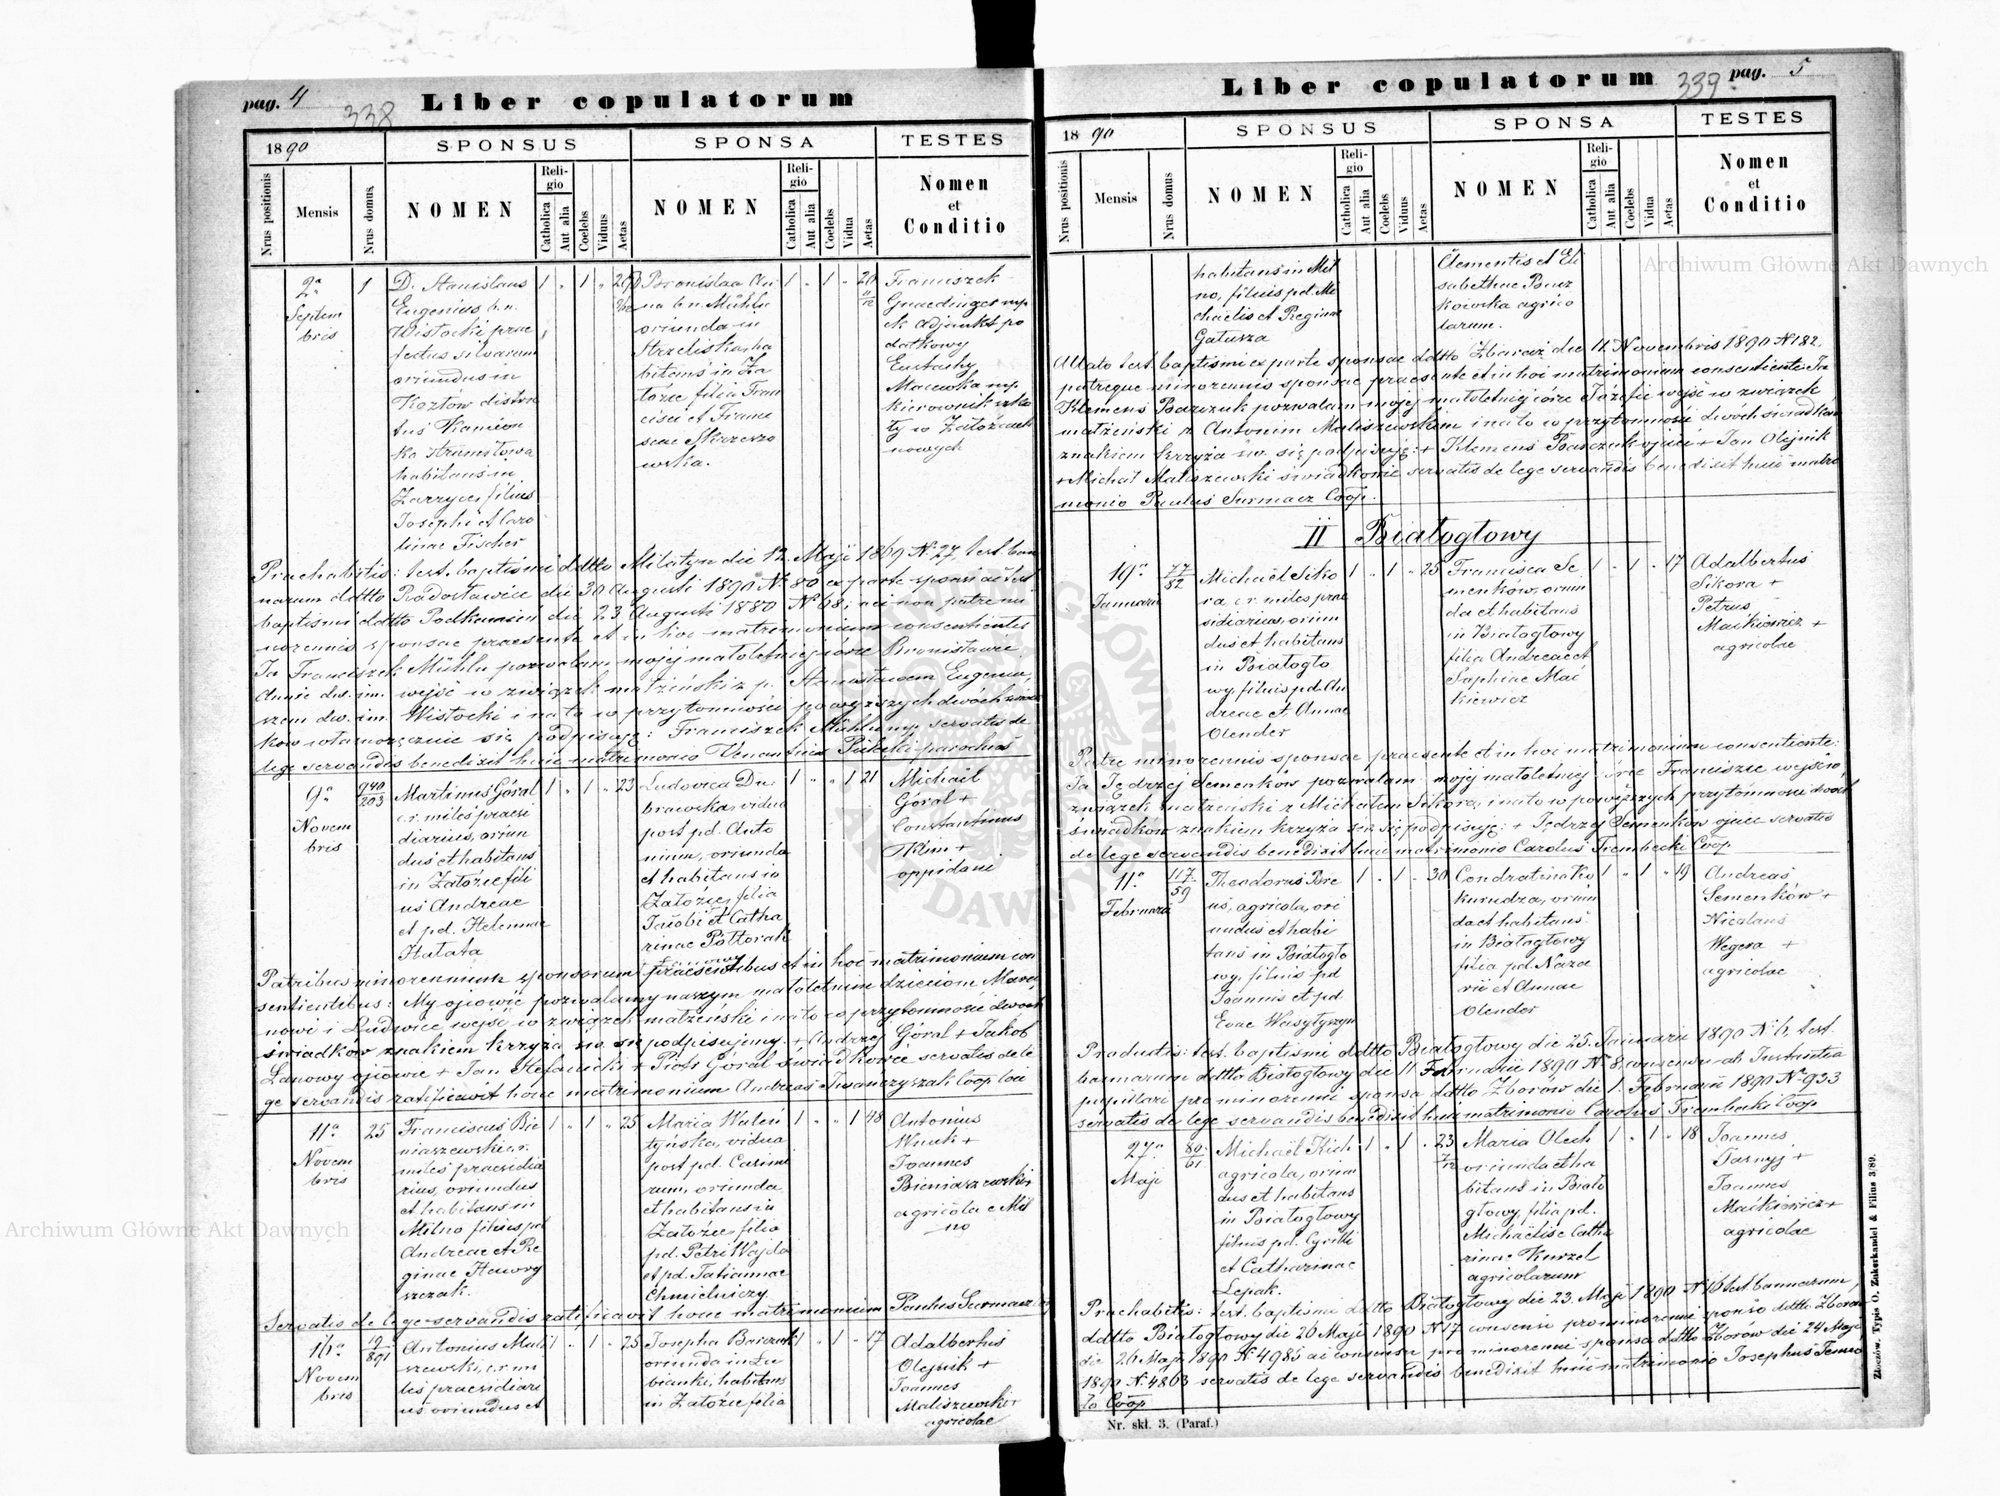 pag. 4
338
Liber copulatorum
1890
SPONSUS
SPONSA
TESTES
Nrus positionis
Mensis
Nrus domus
NOMEN
Religio
Catholica
Aut alia
Coelebs
Viduus
Aetas
NOMEN
Religio
Catholica
Aut alia
Coelebs
Vidua
Aetas
Nomen
et
Conditio
2a
Septem
bris
1
D. Stanislaus
Eugenius b. n.
Wistocki, prae
fectus silvarum
oriundus in
Koztow distric
tus Kamion
ka Strumitowa
habitans in
filius
Josephi et Caro
linae Fischer
1 " 1 "
Bronislaa An
na b. n. Mühln
oriunda in
Strzeliska, ha
bitans in Za
tózce filia Fran
cisci et Franc
iscae Skrzeszo
wska.
1 " 1 " 20 11/12
Franciszek
Gnaedinger mp
ck adjunkt po
datkowy
Eustachy
Macewka mp
kierownik szko
ty w Zatózcach
nowych
Prachabitis: test. baptismi ddtto Milatyn die 12. Maji 1869 N. 27, test. ban
narum ddtto Radostawice die 30 Augusti 1890 N. 80 ex parte sponsi ac test
baptismi ddtto Podkamień die 23 Augusti 1880 N. 68; nec non patre mi
norennis sponsae praesente et in hoc matrimonium consentiente:
Ja Franciszek Mühln pozwalam mojej matoletniej córce Bronistawie
Annie dw. im. wejść w związek matżeński z p. Stanistawem Eugeniu
szem dw. im. Wistocki i na to w przytomności powyższych dwóch świad
ków wtasnoręcznie się podpisuję: Franciszek Mühln mp, servatis de
lege servandis benedixit huic matrimonio Venantius parochus
9a
Novem
bris
940
203
Martinus Góral
c.r. miles praesi
diarius, oriun
dus et habitans
in Zatózce fili
us Andreae
et pd. Helennae
Hatata
1 " 1 " 23
Ludovica Du
browska, vidua
post pd. Anto
nium, oriunda
et habitans in
Zatózce, filia
Jacobi et Catha
rinae Póttorak
Lanowy
1 " " 1 21
Michaël
Góral +
Constantinus
Klim +
oppidani
Patribus minorennium sponsorum praesentibus et in hoc matrimonium con
sentientibus: My ojcowie pozwalamy naszym matoletnim dzieciom Marci
nowi i Ludwice wejść w związek matżeński i na to w przytomności dwóch
świadków znakiem krzyża św. się podpisujemy + Andrzej Góral + Jakób
Lanowy ojcowie + Jan Stefanicki + Piotr Góral świadkowie servatis de le
ge servandis ratificavit hunc matrimonium Andreas Iwanczyszak Coop loci
11a
Novem
bris
25
Franciscus Bie
niaszewski c.r.
miles praesidia
rius, oriundus
et habitans in
Milno filius pd
Andreae et Re
ginae Hawry
szczak.
1 " 1 " 25
Maria Waleń
tyńska, vidua
post pd. Casimi
rum, oriunda
et habitans in
Zatózce, filia
pd. Petri Wajda
et pd. Tatiannae
Chmielniczy
1 " " 1 48
Antonius
Wnuk +
Joannes
Bieniaszewski +
agricola e Mil
no
Servatis de lege servandis ratificavit hunc matrimonium Paulus Surmacz Coop
16a
Novem
bris
19
891
Antonius Mali
szewski, c.r. mi
les praesidiari
us oriundus et
1 " 1 " 25
Josepha Barczuk
oriunda in Lu
bianki, habitans
in Zatózce filia
1 " 1 " 17
Adalbertus
Olejnik +
Joannes
Maliszewski +
agricolae
Liber copulatorum
339
pag. 5
1890
SPONSUS
SPONSA
TESTES
Nrus positionis
Mensis
Nrus domus
NOMEN
Religio
Catholica
Aut alia
Coelebs
Viduus
Aetas
NOMEN
Religio
Catholica
Aut alia
Coelebs
Vidua
Aetas
Nomen
et
Conditio
habitans in Mil
no, filius pd. Mi
chaelis et Reginae
Gatusza
Clementis et Eli
sabethae Bucz
kowska agrico
larum.
Allato test. baptismi ex parte sponsae ddtto Zbaraż die 11. Novembris 1890 N. 182,
patreque minorennis sponsae praesente et in hoc matrimonium consentiente: Ja
Klemens Barczuk pozwalam mojej matoletniej córce Józefie wejść w związek
matżeński z Antonim Maliszewskim i na to w przytomności dwóch świadków
znakiem krzyża św. się podpisuję: + Klemens Barczuk ojciec + Jan Olejnik
+ Michat Maliszewski świadkowie servatis de lege servandis benedixit huic matri
monio Paulus Surmacz Coop.
II Biatogtowy
19a
Januarii
77
82
Michaël Siko
ra, c.r. miles prae
sidiarius, oriun
dus et habitans
in Biatogto
wy, filius pd. An
dreae et Annae
Olender
1 " 1 " 25
Francisca Se
menków, oriun
da et habitans
in Biatogtowy
filia Andreae et
Sophiae Mać
kiewicz
1 " 1 " 17
Adalbertus
Sikora +
Petrus
Maćkiewicz +
agricolae
Patre minorennis sponsae praesente et in hoc matrimonium consentiente:
Ja Jędrzej Semenków pozwalam mojej matoletniej córce Franciszce wejść w
związek matżeński z Michatem Sikora, i na to w powyższych przytomności dwóch
świadków znakiem krzyża św. się podpisuję: + Jędrzej Semenków ojciec servatis
de lege servandis benedixit huic matrimonio Carolus Trembecki Coop
11a
Februarii
117
59
Theodorus Bre
uś, agricola, ori
undus et habi
tans in Biatogto
wy, filius pd
Joannis et pd.
Evae Wasytyszyn
1 " 1 " 30
Condratina Ko
kurudza, oriun
da et habitans
in Biatogtowy
filia pd. Naza
rii et Annae
Olender
1 " 1 " 19
Andreas
Semenków +
Nicolaus
Wegera +
agricolae
Productis: test. baptismi ddtto Biatogtowy die 25. Januarii 1890 N. 6, test.
bannarum ddtto Biatogtowy die 11 Februarii 1890 N. 8, consensu ab Instantia
pupillari pro minorenni sponsa ddtto Zborów die 1. Februarii 1890 N. 933
servatis de lege servandis benedixit huic matrimonio Carolus Trembecki Coop
27a
Maji
80
61
Michaël Kich
agricola, oriun
dus et habitans
in Biatogtowy
filius pd. Cyrilli
et Catharinae
Lepak.
1 " 1 " 23 7/12
Maria Olech
oriunda et ha
bitans in Biato
gtowy, filia pd.
Michaëlis e Catha
rinae Kurzel
agricolarum
1 " 1 " 18
Joannes
Tarnyj +
Joannes
Maćkiewicz +
agricolae
Prachabitis: test. baptismi ddtto Biatogtowy die 23. Maji 1890 N. 16 test. bannarum,
ddtto Biatogtowy die 26 Maji 1890 N. 17 consensu pro minorenni sponso ddtto Zborów
die 26 Maji 1890 N. 4985 ac consensu pro minorenni sponsa ddtto Zborów die 24 Maji
1890 N. 4863 servatis de lege servandis benedixit huic matrimonio Josephus
Coop
Nr. skł. 3. (Paraf.)
Złoczów. Typis O. Zukerkandel & Filius 3/89.
Archiwum Główne Akt Dawnych
Archiwum Główne Akt Dawnych
ARCHIWUM GŁÓWNE AKT DAWNYCH